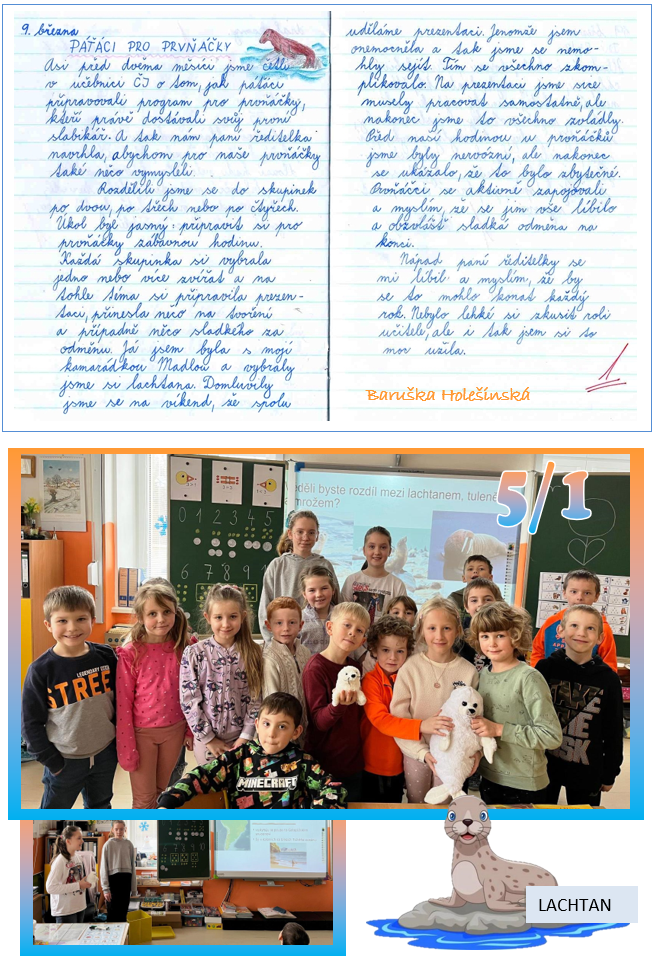 9. března
PÁŤÁCI PRO PRVŇÁČKY
Asi před dvěma měsíci jsme četli
v učebnici ČJ o tom, jak páťáci
připravovali program pro prvňáčky,
kteří právě dostávali svůj první
slabikář. A tak nám paní ředitelka
navrhla, abychom pro naše prvňáčky
také něco vymysleli.
Rozdělili jsme se do skupinek
po dvou, po třech nebo po čtyřech.
Úkol byl jasný: připravit si pro
prvňáčky zábavnou hodinu.
Každá skupinka si vybrala
jedno nebo více zvířat a na
tohle téma si připravila prezen-
taci, přinesla něco na tvoření
a případně něco sladkého za
odměnu. Já jsem byla s mojí
kamarádkou Madlou a vybraly
jsme si lachtana. Domluvily
jsme se na víkend, že spolu
uděláme prezentaci. Jenomže jsem
onemocněla a tak jsme se nemo-
hly sejít. Tím se všechno zkom-
plikovalo. Na prezentaci jsme sice
musely pracovat samostatně, ale
nakonec jsme to všechno zvládly.
Před naší hodinou u prvňáčků
jsme byly nervózní, ale nakonec
se ukázalo, že to bylo zbytečné.
Prvňáčci se aktivně zapojovali
a myslím, že se jim vše líbilo
a obzvlášť sladká odměna na
konci.
Nápad paní ředitelky se
mi líbil a myslím, že by
se to mohlo konat každý
rok. Nebylo lehké si zkusit roli
učitele, ale i tak jsem si to
moc užila.
1
Baruška Holešínská
5/1
děli byste rozdíl mezi lachtanem, tuleně
mrožem?
0 1 2 3 4 5
6 7 8 9
LEGENDARY
STREE
MINECRAFT
LACHTAN